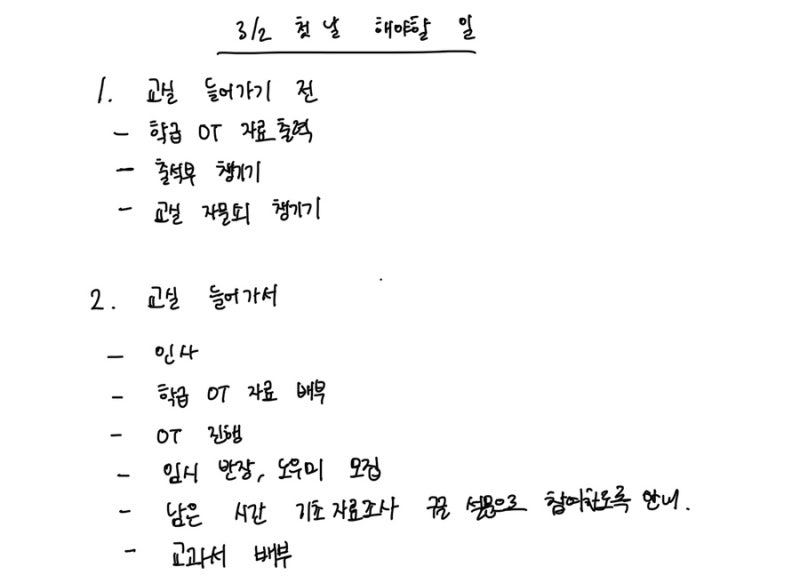 3/2 첫 날 해야할 일
1. 교실 들어가기 전
- 학급 OT 자료 출력
- 출석부 챙기기
- 교실 자물쇠 챙기기
2. 교실 들어가서
- 인사
- 학급 OT 자료 배부
- OT 진행
- 임시 반장, 도우미 모집
- 남은 시간 기초자료조사 구글 설문으로 참여하도록 안내.
- 교과서 배부